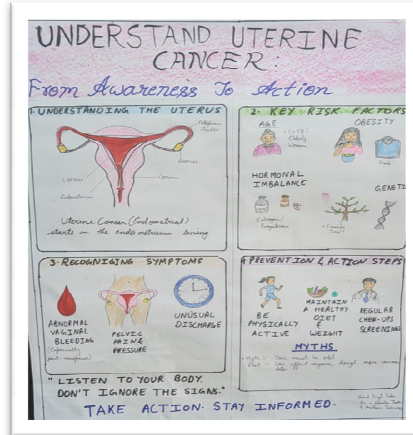 UNDERSTAND UTERINE
CANCER:
From Awareness To Action
1. UNDERSTANDING THE UTERUS
Fallopian
Tubes
Ovaries
Uterus
Cervix
Endometrium
Uterine Cancer (Endometrial)
starts in the endometrium lining
2. KEY RISK FACTORS
AGE
Elderly
Women
OBESITY
HORMONAL
IMBALANCE
GENETI
3. RECOGNIGING SYMPTOMS
ABNORMAL
VAGINAL
BLEEDING
(Especially
post-menopause)
PELVIC
PAIN &
PRESSURE
UNUSUAL
DISCHARGE
4 PREVENTION & ACTION STEPS
BE
PHYSICALLY
ACTIVE
MAINTAIN
A HEALTHY
DIET
&
WEIGHT
REGULAR
CHEK-UPS
SCREENINGS
MYTHS
" LISTEN TO YOUR BODY.
DON'T IGNORE THE SIGNS."
TAKE ACTION. STAY INFORMED.